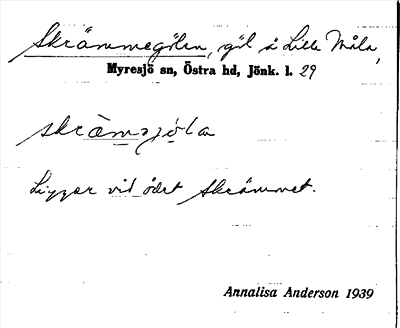 Skrämmegölen, göl å Lilla Måla,
Myresjö sn, Östra hd, Jönk. l. 29
skräm_jöla
Ligger vid ödet Skrämmet.
Annalisa Anderson 1939